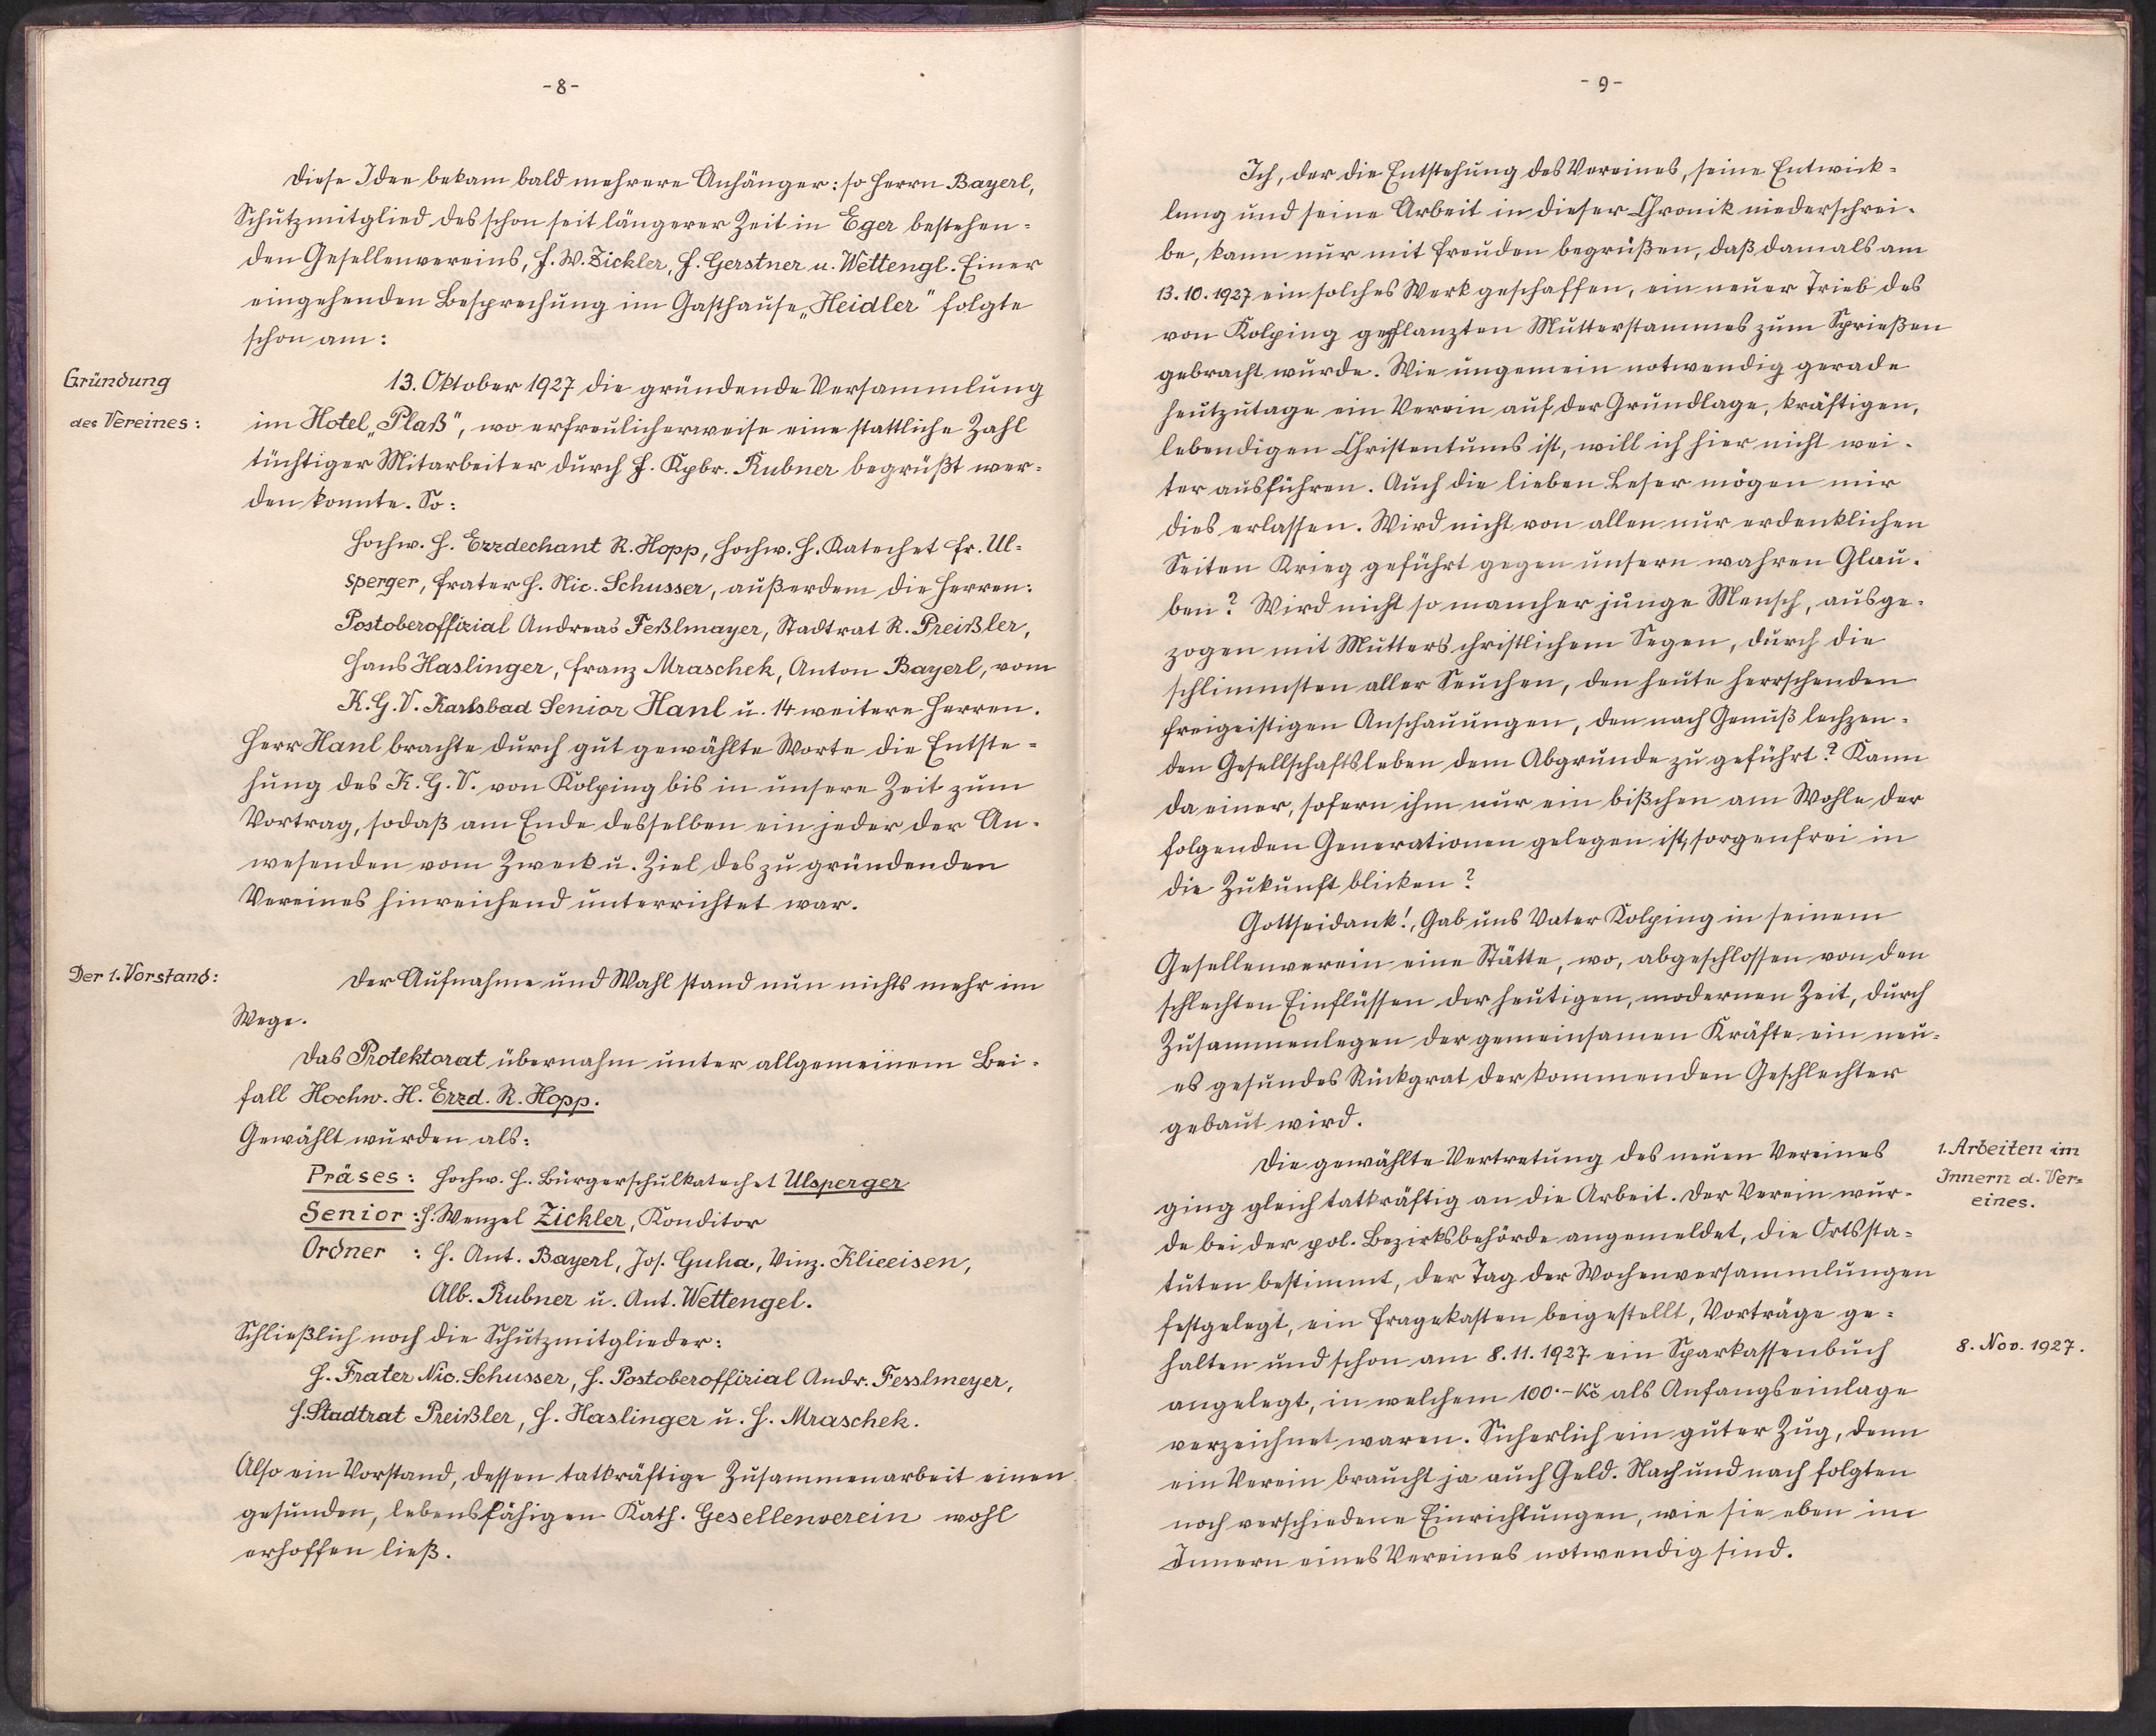 -8-
Diese Idee bekam bald mehrere Anhänger: so Herrn Bayerl,
Schutzmitglied des schon seit längerer Zeit in Eger bestehen=
den Gesellenvereins, H. W. Zickler, H. Gerstner u. Wettengl. Einer
eingehenden Besprechung im Gasthause „Heidler" folgte
schon am:
Gründung
des Vereines:
13. Oktober 1927 die gründende Versammlung
im Hotel „Plaß", wo erfreulicherweise eine stattliche Zahl
tüchtiger Mitarbeiter durch H. Kpbr. Rubner begrüßt wer=
den konnte. So:
Hochw. H. Erzdechant R. Hopp, Hochw. H. Katechet Fr. Ul=
sperger, Frater H. Nic. Schusser, außerdem die Herren:
Postoberoffizial Andreas Feßlmayer, Stadtrat R. Preißler,
Hans Haslinger, Franz Mraschek, Anton Bayerl, vom
K. G. V. Karlsbad Senior Hanl u. 14 weitere Herren.
Herr Hanl brachte durch gut gewählte Worte die Entste=
hung des K. G. V. von Kolping bis in unsere Zeit zum
Vortrag, sodaß am Ende desselben ein jeder der An-
wesenden vom Zweck u. Ziel des zu gründenden
Vereines hinreichend unterrichtet war.
Der 1. Vorstand:
Der Aufnahme und Wahl stand nun nichts mehr im
Wege.
Das Protektorat übernahm unter allgemeinem Bei-
fall Hochw. H. Erzd. R. Hopp.
Gewählt wurden als:
Präses: Hochw. H. Bürgerschulkatechet Ulsperger
Senior: H. Wenzel Zickler, Konditor
Ordner : H. Ant. Bayerl, Jos. Guha, Vinz. Klieeisen,
Alb. Rubner u. Ant. Wettengel.
Schließlich noch die Schutzmitglieder:
H. Frater Nic. Schusser, H. Postoberoffizial Andr. Fesslmeyer,
H. Stadtrat Preißler, H. Haslinger u. H. Mraschek.
Also ein Vorstand, dessen tatkräftige Zusammenarbeit einen
gesunden, lebensfähigen Kath. Gesellenverein wohl
erhoffen ließ.
-9-
Ich, der die Entstehung des Vereines, seine Entwick=
lung und seine Arbeit in dieser Chronik niederschrei-
be, kann nur mit Freuden begrüßen, daß damals am
13.10.1927 ein solches Werk geschaffen, ein neuer Trieb des
von Kolping gepflanzten Mutterstammes zum Sprießen
gebracht wurde. Wie ungemein notwendig gerade
heutzutage ein Verein auf der Grundlage, kräftigen,
lebendigen Christentums ist, will ich hier nicht wei-
ter ausführen. Auch die lieben Leser mögen mir
dies erlassen. Wird nicht von allen nur erdenklichen
Seiten Krieg geführt gegen unsern wahren Glau-
ben? Wird nicht so mancher junge Mensch, ausge-
zogen mit Mutters christlichem Segen, durch die
schlimmsten aller Seuchen, den heute herrschenden
freigeistigen Anschauungen, den nach Genuß lechzen-
den Gesellschaftsleben dem Abgrunde zu geführt? Kann
da einer, sofern ihm nur ein bißchen am Wohle der
folgenden Generationen gelegen ist, sorgenfrei in
die Zukunft blicken?
Gottseidank!, Gab uns Vater Kolping in seinem
Gesellenverein eine Stätte, wo, abgeschlossen von den
schlechten Einflüssen der heutigen, modernen Zeit, durch
Zusammenlegen der gemeinsamen Kräfte ein neu=
es gesundes Rückgrat der kommenden Geschlechter
gebaut wird.
1. Arbeiten im
Innern d. Ver=
eines.
Die gewählte Vertretung des neuen Vereines
ging gleich tatkräftig an die Arbeit. Der Verein wur-
de bei der pol. Bezirksbehörde angemeldet, die Ortssta=
tuten bestimmt, der Tag der Wochenversammlungen
festgelegt, ein Fragekasten beigestellt, Vorträge ge=
halten und schon am 8.11.1927 ein Sparkassenbuch
8. Nov. 1927.
angelegt, in welchem 100.- Kč als Anfangseinlage
verzeichnet waren. Sicherlich ein guter Zug, denn
ein Verein braucht ja auch Geld. Nach und nach folgten
noch verschiedene Einrichtungen, wie sie eben im
Innern eines Vereines notwendig sind.